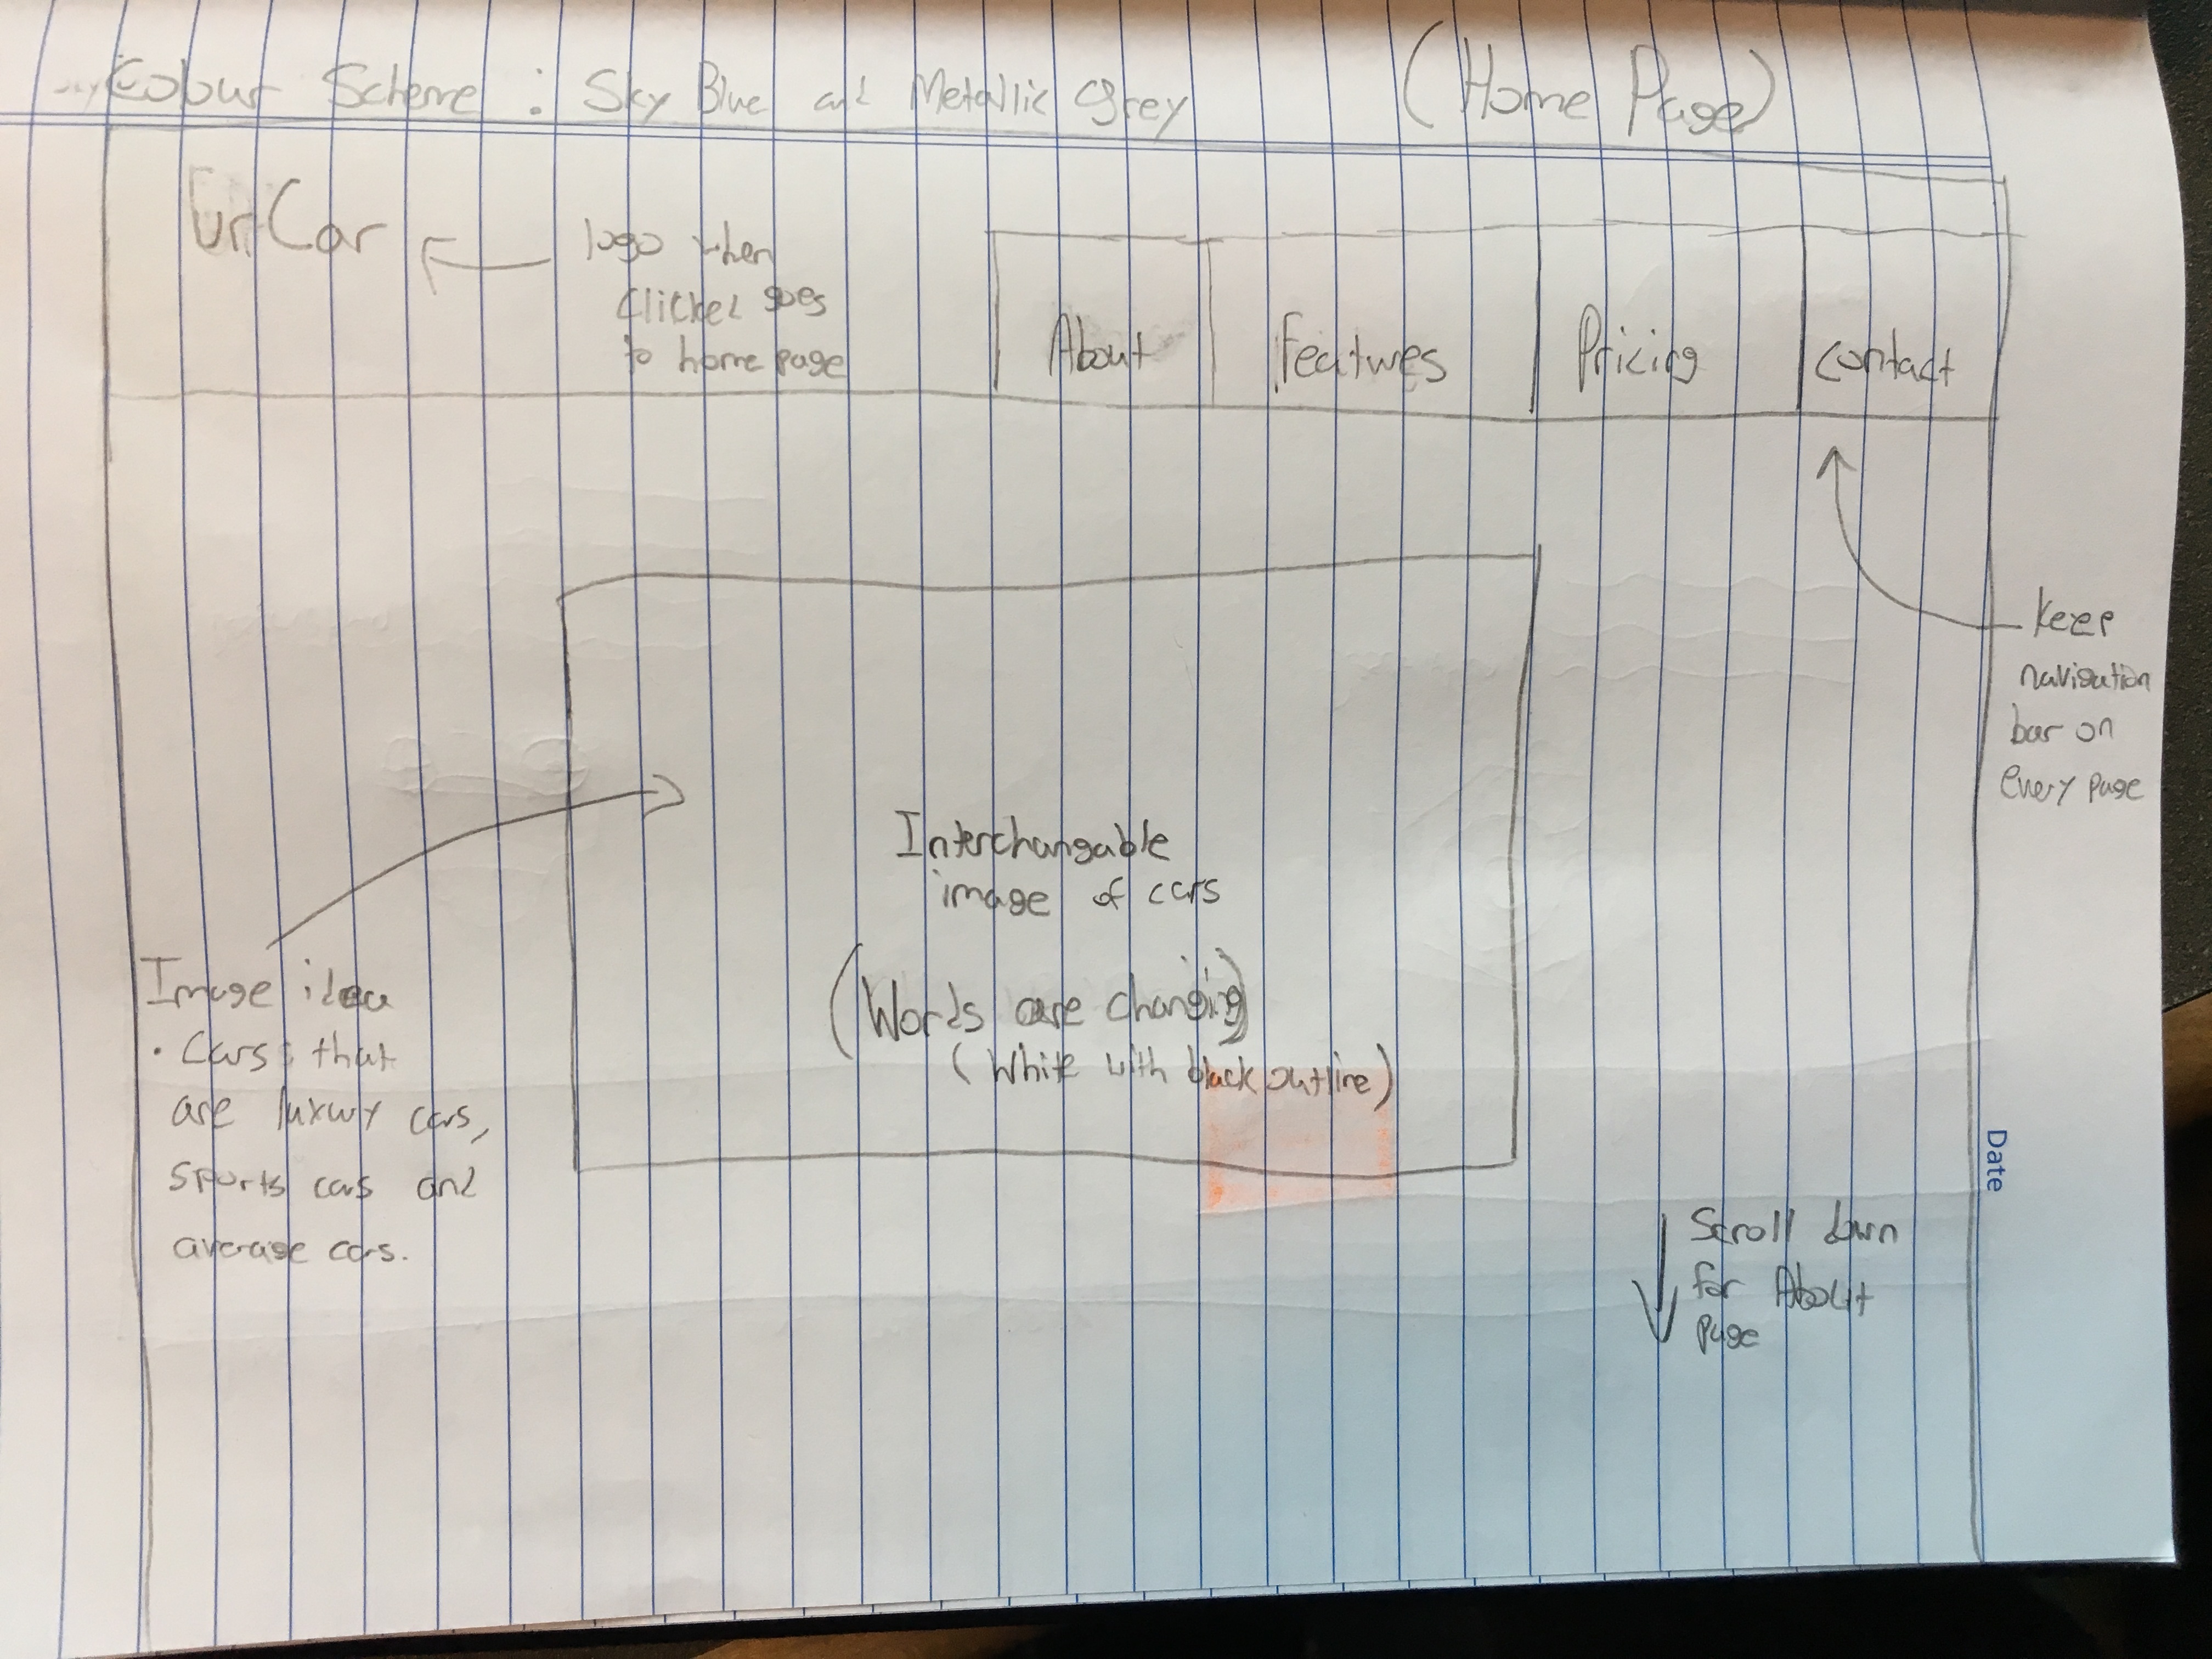 Colour Scheme : Sky Blue and Metallic Grey
(Home Page)
UrCar
logo when
clicked goes
to home page
About
Features
Pricing
Contact
Keep
navigation
bar on
every page
Interchangable
image of cars
(Words are changing)
(White with black outline)
Image idea
• Cars that
are luxury cars,
sports cars and
average cars.
Scroll down
for About
page
Date